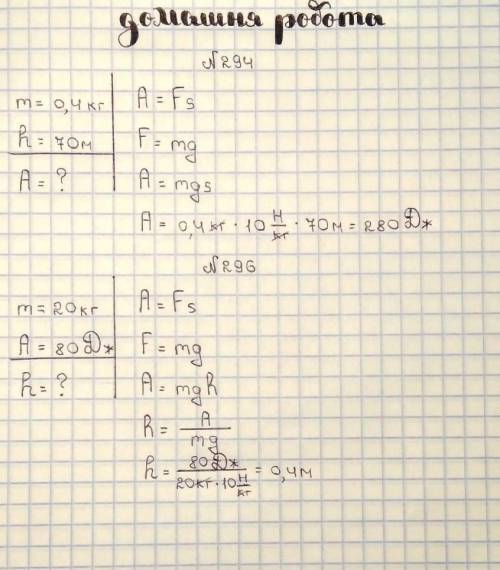 домашня робота
№294
m = 0,4 кг A = Fs
h = 70м F = mg
A = ? A = mgs
A = 0,4 кг · 10 Н/кг · 70м = 280 Дж
№296
m = 20 кг A = Fs
A = 80 Дж F = mg
h = ? A = mgh
h = A/mg
h = 80 Дж/20кг · 10 Н/кг = 0,4м